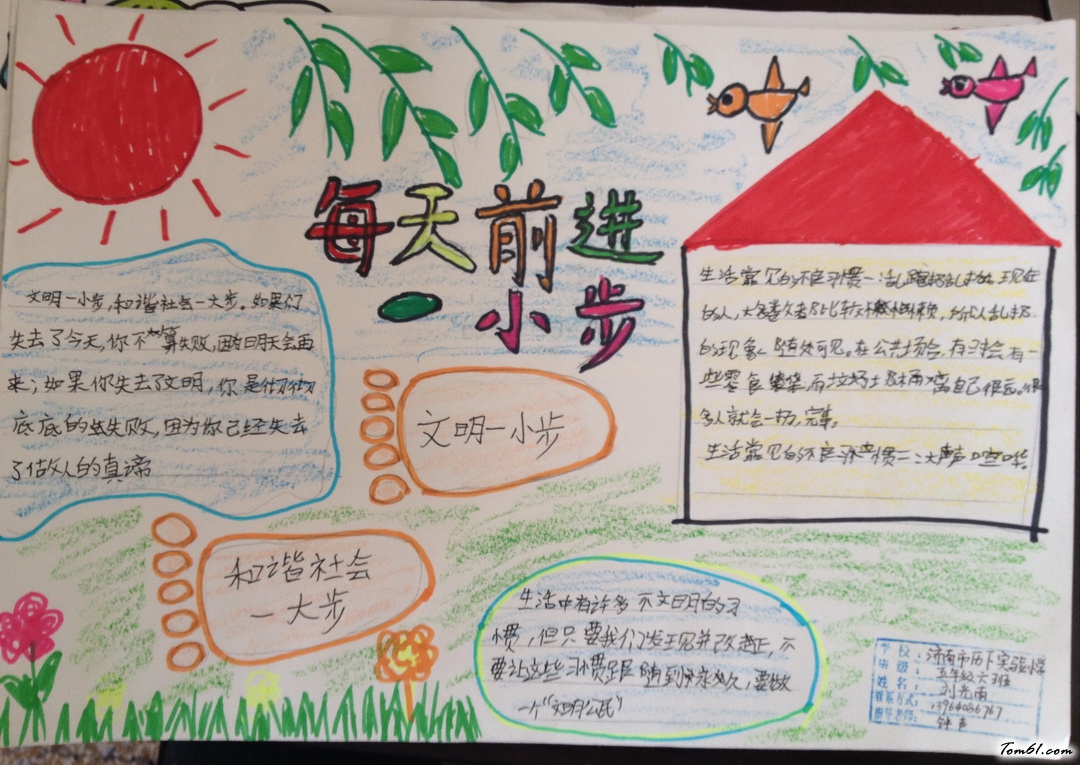 每天前进
一小步
文明一小步,和谐社会一大步。如果你
失去了今天,你不算失败,因为明天会再
来;如果你失去了文明,你是彻彻
底底的失败,因为你已经失去
了做人的真谛
文明一小步
和谐社会
一大步
生活常见的不良习惯一:乱踢乱扔 现在
的人,大多数都比较懒,所以乱扔
的现象,随处可见。在公共场合,有时会有一
些零食袋,而垃圾桶离自己很远。很
多人就会一扔,完事。
生活常见的不良习惯二:大声喧哗。
生活中有许多不文明的习
惯,但只要我们发现并改正,不
要让这些习惯跟随到永久,要做
一个“文明公民”
学校:济南市历下实验小学
班级:五年级六班
姓名:刘
联系方式:13964086767
指导老师:钟
Tom61.com